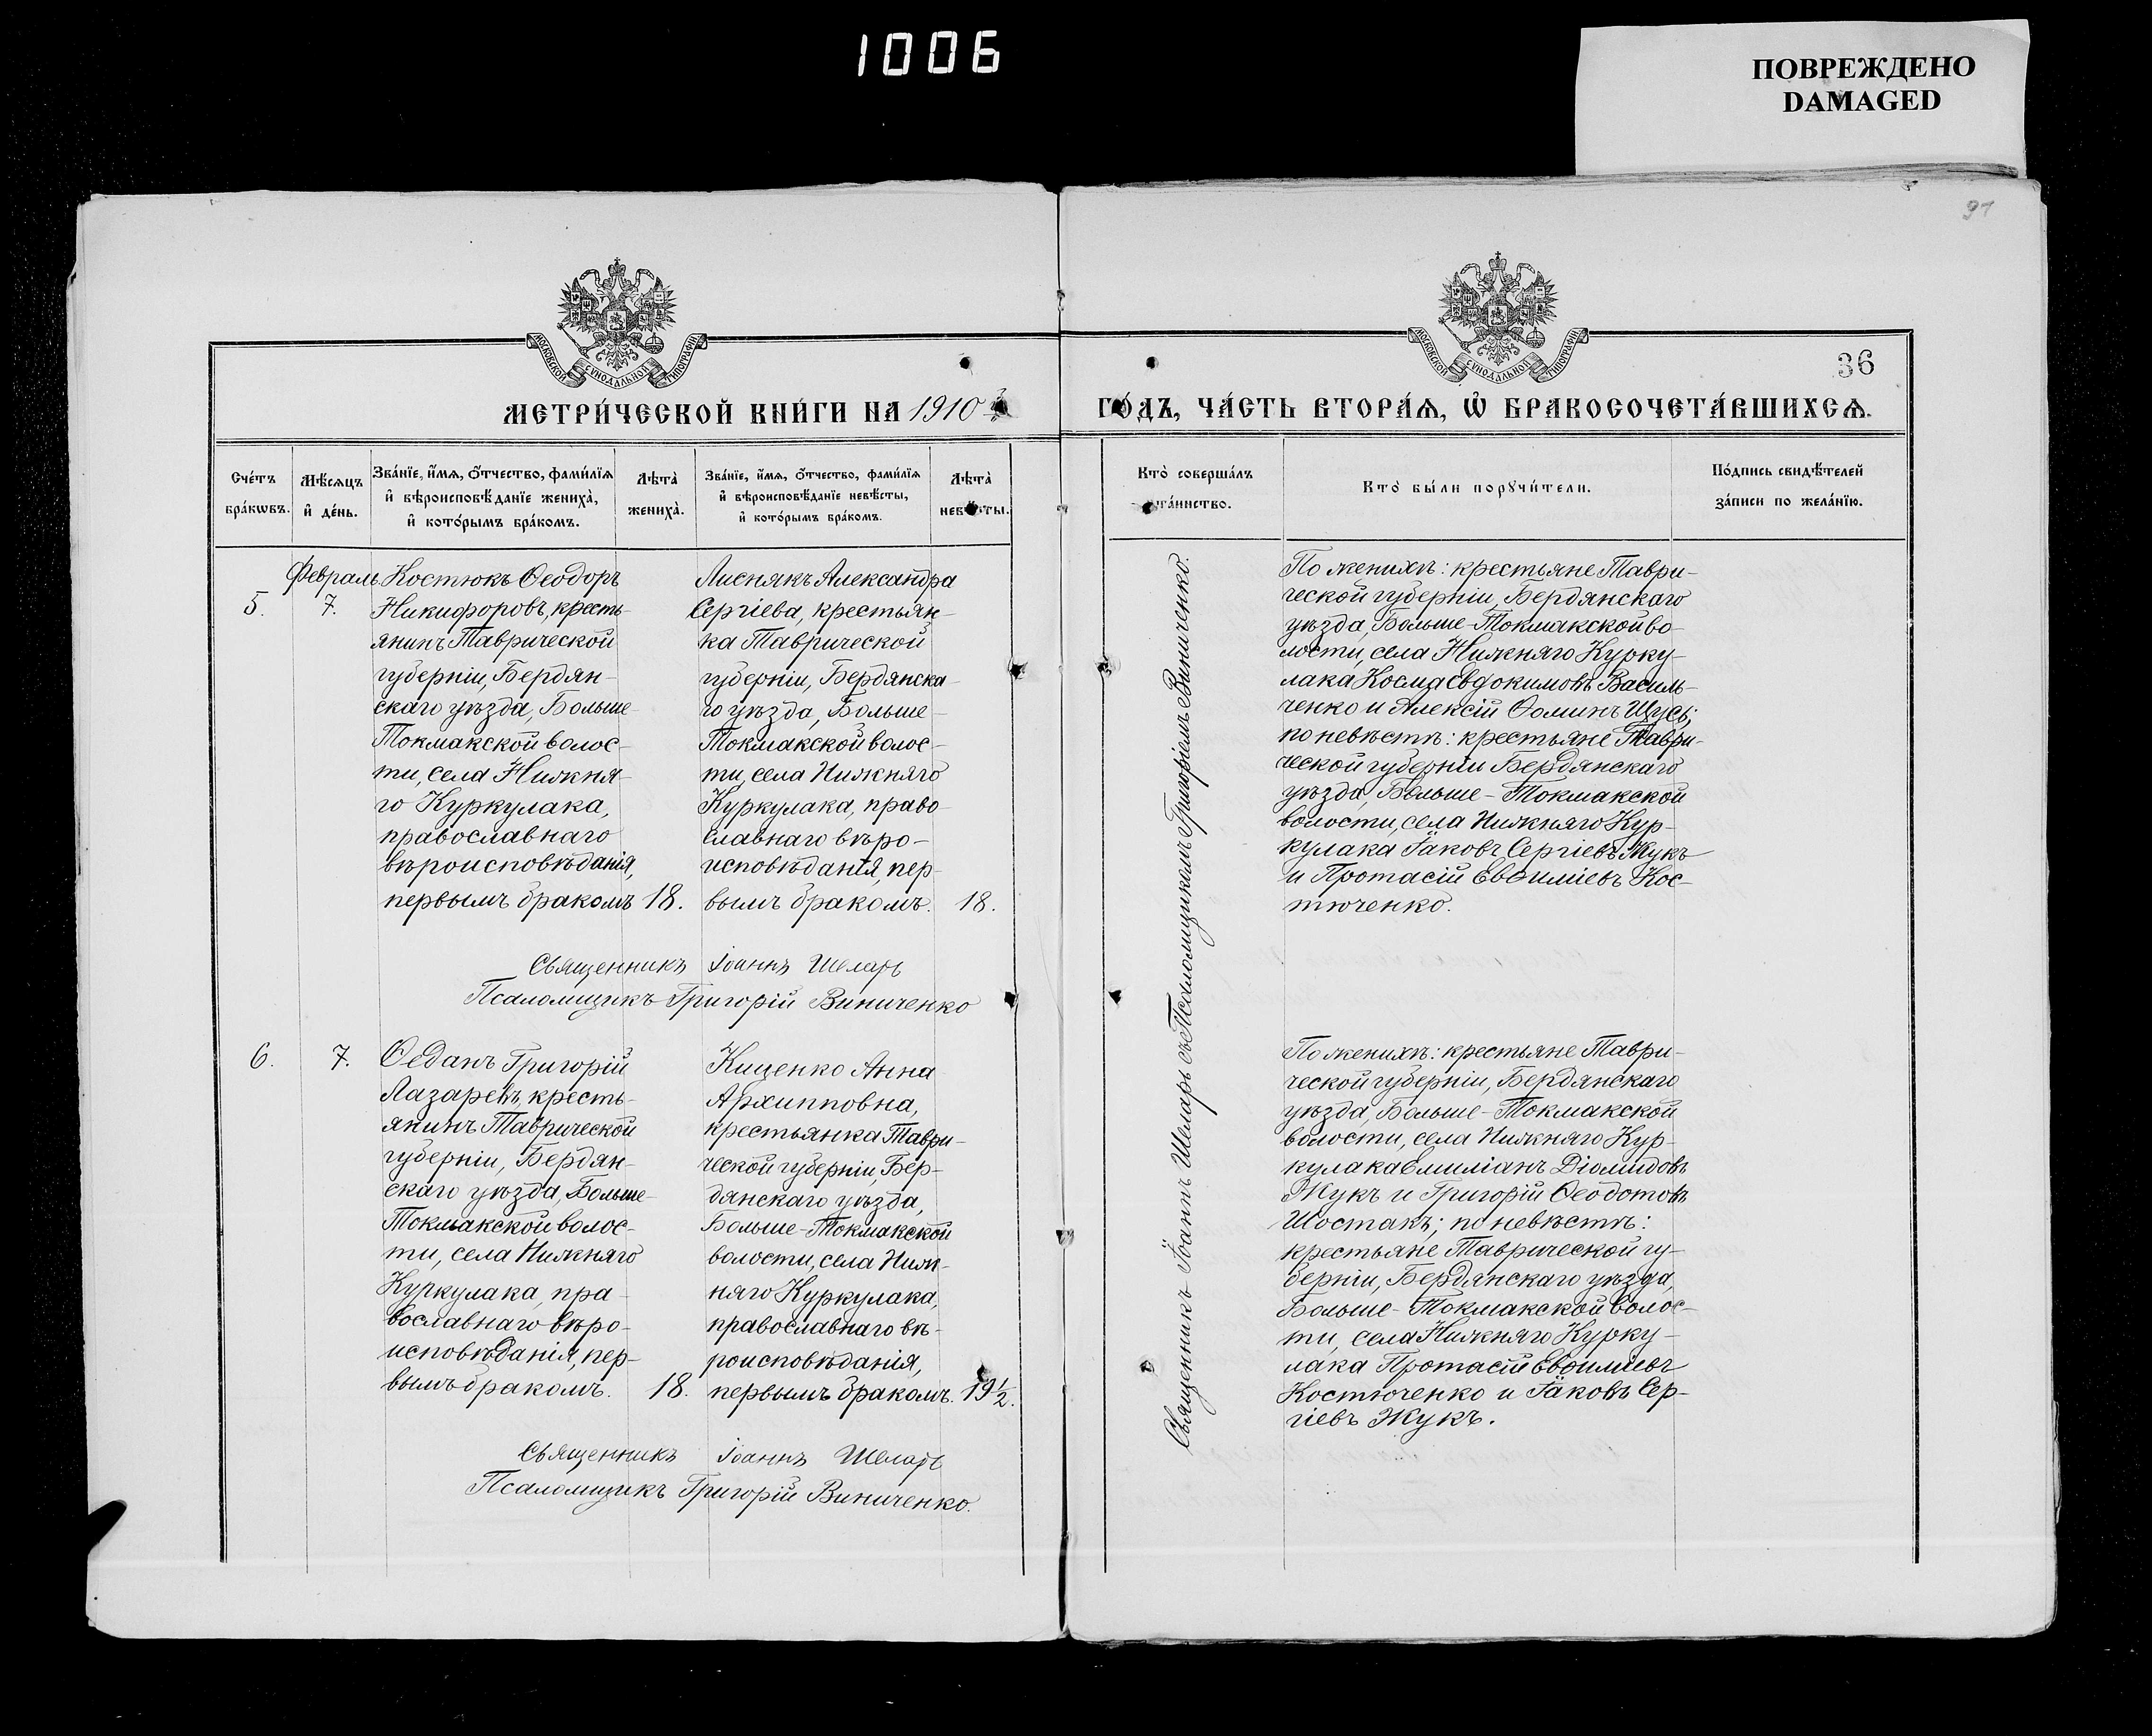 1006
ПОВРЕЖДЕНО
DAMAGED
91
МОСКОВСКОЙ СѴНОДАЛЬНОЙ ТИПОГРАФІИ
МОСКОВСКОЙ СѴНОДАЛЬНОЙ ТИПОГРАФІИ
36
МЕТРИ́ЧЕСКОЙ КНИ́ГИ НА 1910 й
ГО́ДЪ, ЧА́СТЬ ВТОРА́Я, Ѡ҆ БРАКОСОЧЕТА́ВШИХСѦ.
Сче́тъ
бра́кѡвъ.
Мѣ́сяцъ
и҆ де́нь.
Зва́нїе, и҆́мѧ, о҆́тчество, фами́лїѧ
и҆ вѣроисповѣ́данїе жениха̀,
и҆ кото́рымъ бра́комъ.
Лѣта̀
жениха̀.
Зва́нїе, и҆́мѧ, о҆́тчество, фами́лїѧ
и҆ вѣроисповѣ́данїе невѣ́сты,
и҆ кото́рымъ бра́комъ.
Лѣта̀
невѣ́сты.
Кто̀ соверша́лъ
та́инство.
Кто̀ бы́ли порꙋчи́тели.
По́дпись свидѣ́телей
за́писи по жела́нїю.
Февраль
5.
7.
Костюкъ Ѳеодоръ
Никифоровъ, кресть-
янинъ Таврической
губерніи, Бердян-
скаго уѣзда, Больше-
Токмакской волос-
ти, села Нижня-
го Куркулака,
православнаго
вѣроисповѣданія,
первымъ бракомъ
18.
Лиснякъ Александра
Сергіева, крестьян-
ка Таврической
губерніи, Бердянска-
го уѣзда, Больше-
Токмакской волос-
ти, села Нижняго
Куркулака, право-
славнаго вѣро-
исповѣданія, пер-
вымъ бракомъ.
18.
Священникъ Іоаннъ Шеларь
Псаломщикъ Григорій Виниченко
Священникъ Іоаннъ Шеларь съ Псаломщикомъ Григоріемъ Виниченко.
По женихѣ: крестьяне Таври-
ческой губерніи, Бердянскаго
уѣзда, Больше-Токмакской во-
лости, села Нижняго Курку-
лака Косма Евдокимовъ Василь-
ченко и Алексій Ѳоминъ Щусь;
по невѣстѣ: крестьяне Таври-
ческой губерніи Бердянскаго
уѣзда, Больше-Токмакской
волости, села Нижняго Кур-
кулака Іаковъ Сергіевъ Жукъ
и Протасій Евѳиміевъ Кос-
тюченко.
6.
7.
Ѳеданъ Григорій
Лазаревъ, кресть-
янинъ Таврической
губерніи, Бердян-
скаго уѣзда, Больше-
Токмакской волос-
ти, села Нижняго
Куркулака, пра-
вославнаго вѣро-
исповѣданія, пер-
вымъ бракомъ.
18.
Киценко Анна
Архипповна,
крестьянка Таври-
ческой губерніи, Бер-
дянскаго уѣзда,
Больше-Токмакской
волости, села Ниж-
няго Куркулака,
православнаго вѣ-
роисповѣданія,
первымъ бракомъ.
19½.
Священникъ Іоаннъ Шеларь
Псаломщикъ Григорій Виниченко.
По женихѣ: крестьяне Таври-
ческой губерніи, Бердянскаго
уѣзда, Больше-Токмакской
волости, села Нижняго Кур-
кулака Емиліанъ Діомидовъ
Жукъ и Григорій Ѳеодотовъ
Шостакъ; по невѣстѣ:
крестьяне Таврической гу-
берніи, Бердянскаго уѣзда,
Больше-Токмакской волос-
ти, села Нижняго Курку-
лака Протасій Евѳиміевъ
Костюченко и Іаковъ Сер-
гіевъ Жукъ.